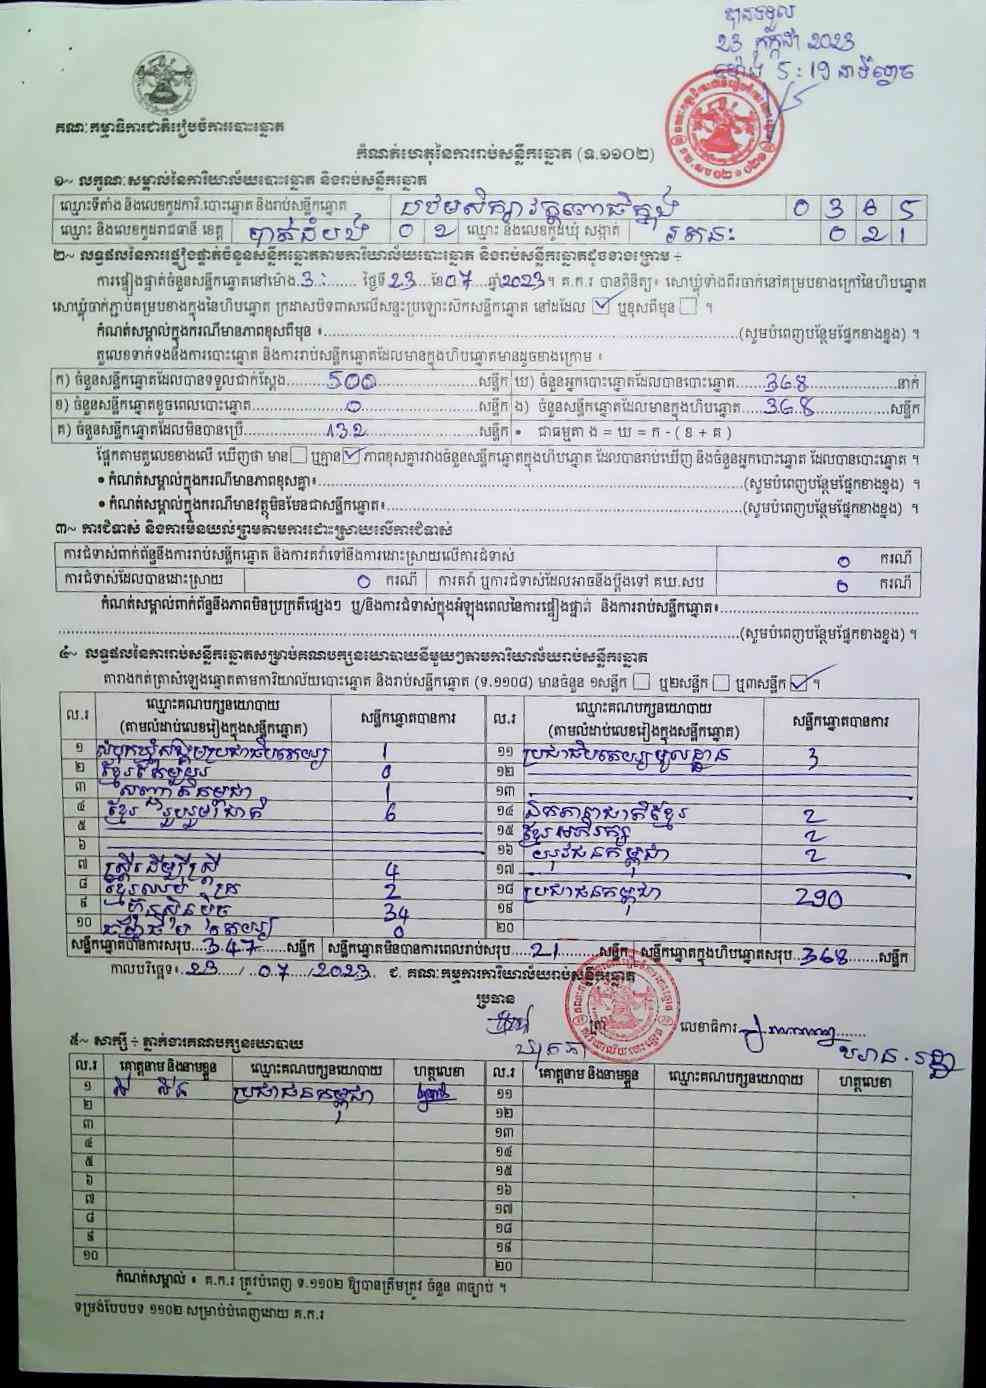 បានទទួល
23 កក្កដា 2023
ម៉ោង 5:19 នាទីល្ងាច
គណៈកម្មាធិការជាតិរៀបចំការបោះឆ្នោត
កំណត់ហេតុនៃការរាប់សន្លឹកឆ្នោត (ទ.១១០២)
១~ លក្ខណៈសម្គាល់នៃការិយាល័យបោះឆ្នោត និងរាប់សន្លឹកឆ្នោត
ឈ្មោះទីតាំង និងលេខកូដការិ.បោះឆ្នោត និងរាប់សន្លឹកឆ្នោត បឋមសិក្សាវត្តពោធិ៍ក្នុង 0 3 6 5
ឈ្មោះ និងលេខកូដរាជធានី ខេត្ត បាត់ដំបង 0 2 ឈ្មោះ និងលេខកូដឃុំ សង្កាត់ រតនៈ 0 2 1
២~ លទ្ធផលនៃការផ្ទៀងផ្ទាត់ចំនួនសន្លឹកឆ្នោតតាមការិយាល័យបោះឆ្នោត និងរាប់សន្លឹកឆ្នោតដូចខាងក្រោម ÷
ការផ្ទៀងផ្ទាត់ចំនួនសន្លឹកឆ្នោតនៅម៉ោង 3 : ...... ថ្ងៃទី 23 ខែ 07 ឆ្នាំ 2023 ។ គ.ក.រ បានពិនិត្យ៖ សោឃ្លុំទាំងពីរចាក់នៅគម្របខាងក្រៅនៃហិបឆ្នោត
សោឃ្លុំចាក់ភ្ជាប់គម្របខាងក្នុងនៃហិបឆ្នោត ក្រដាសបិទពាសលើសន្ទះប្រឡោះស៊កសន្លឹកឆ្នោត នៅដដែល ☑ ឬខុសពីមុន ☐ ។
កំណត់សម្គាល់ក្នុងករណីមានភាពខុសពីមុន ៖ (សូមបំពេញបន្ថែមផ្នែកខាងខ្នង) ។
តួលេខទាក់ទងនឹងការបោះឆ្នោត និងការរាប់សន្លឹកឆ្នោតដែលមានក្នុងហិបឆ្នោតមានដូចខាងក្រោម ៖
ក) ចំនួនសន្លឹកឆ្នោតដែលបានទទួលជាក់ស្តែង 500 សន្លឹក ឃ) ចំនួនអ្នកបោះឆ្នោតដែលបានបោះឆ្នោត 368 នាក់
ខ) ចំនួនសន្លឹកឆ្នោតខូចពេលបោះឆ្នោត 0 សន្លឹក ង) ចំនួនសន្លឹកឆ្នោតដែលមានក្នុងហិបឆ្នោត 368 សន្លឹក
គ) ចំនួនសន្លឹកឆ្នោតដែលមិនបានប្រើ 132 សន្លឹក • ជាធម្មតា ង = ឃ = ក - ( ខ + គ )
ផ្អែកតាមតួលេខខាងលើ ឃើញថា មាន ☐ ឬគ្មាន ☑ ភាពខុសគ្នារវាងចំនួនសន្លឹកឆ្នោតក្នុងហិបឆ្នោត ដែលបានរាប់ឃើញ និងចំនួនអ្នកបោះឆ្នោត ដែលបានបោះឆ្នោត ។
• កំណត់សម្គាល់ក្នុងករណីមានភាពខុសគ្នា៖ (សូមបំពេញបន្ថែមផ្នែកខាងខ្នង) ។
• កំណត់សម្គាល់ក្នុងករណីមានវត្ថុមិនមែនជាសន្លឹកឆ្នោត៖ (សូមបំពេញបន្ថែមផ្នែកខាងខ្នង) ។
៣~ ការជំទាស់ និងការមិនយល់ព្រមតាមការដោះស្រាយលើការជំទាស់
ការជំទាស់ពាក់ព័ន្ធនឹងការរាប់សន្លឹកឆ្នោត និងការតវ៉ាទៅនឹងការដោះស្រាយលើការជំទាស់ 0 ករណី
ការជំទាស់ដែលបានដោះស្រាយ 0 ករណី ការតវ៉ា ឬការជំទាស់ដែលអាចនឹងប្តឹងទៅ គឃ.សប 0 ករណី
កំណត់សម្គាល់ពាក់ព័ន្ធនឹងភាពមិនប្រក្រតីផ្សេងៗ ឬ/និងការជំទាស់ក្នុងអំឡុងពេលនៃការផ្ទៀងផ្ទាត់ និងការរាប់សន្លឹកឆ្នោត៖
(សូមបំពេញបន្ថែមផ្នែកខាងខ្នង) ។
៤~ លទ្ធផលនៃការរាប់សន្លឹកឆ្នោតសម្រាប់គណបក្សនយោបាយនីមួយៗតាមការិយាល័យរាប់សន្លឹកឆ្នោត
តារាងកត់ត្រាសំឡេងឆ្នោតតាមការិយាល័យបោះឆ្នោត និងរាប់សន្លឹកឆ្នោត (ទ.១១០៨) មានចំនួន ១សន្លឹក ☐ ឬ២សន្លឹក ☐ ឬ៣សន្លឹក ☑ ។
ល.រ ឈ្មោះគណបក្សនយោបាយ (តាមលំដាប់លេខរៀងក្នុងសន្លឹកឆ្នោត) សន្លឹកឆ្នោតបានការ ល.រ ឈ្មោះគណបក្សនយោបាយ (តាមលំដាប់លេខរៀងក្នុងសន្លឹកឆ្នោត) សន្លឹកឆ្នោតបានការ
១ សំបុកឃ្មុំសង្គមប្រជាធិបតេយ្យ 1 ១១ ប្រជាធិបតេយ្យមូលដ្ឋាន 3
២ ខ្មែរ 0 ១២
៣ សញ្ជាតិកម្ពុជា 1 ១៣
៤ ខ្មែររួបរួមជាតិ 6 ១៤ ឯកភាពជាតិខ្មែរ 2
៥ ១៥ ខ្មែរអភិរក្ស 2
៦ ១៦ យុវជនកម្ពុជា 2
៧ ស្ត្រីដើម្បីស្ត្រី 4 ១៧
៨ ខ្មែរឈប់ក្រ 2 ១៨ ប្រជាជនកម្ពុជា 290
៩ ហ្វ៊ុនស៊ិនប៉ិច 34 ១៩
១០ 0 ២០
សន្លឹកឆ្នោតបានការសរុប 347 សន្លឹក សន្លឹកឆ្នោតមិនបានការពេលរាប់សរុប 21 សន្លឹក សន្លឹកឆ្នោតក្នុងហិបឆ្នោតសរុប 368 សន្លឹក
កាលបរិច្ឆេទ៖ 23 / 07 / 2023 ជ. គណៈកម្មការការិយាល័យរាប់សន្លឹកឆ្នោត
ប្រធាន
លេខាធិការ
៥~ សាក្សី ÷ ភ្នាក់ងារគណបក្សនយោបាយ
ល.រ គោត្តនាម និងនាមខ្លួន ឈ្មោះគណបក្សនយោបាយ ហត្ថលេខា ល.រ គោត្តនាម និងនាមខ្លួន ឈ្មោះគណបក្សនយោបាយ ហត្ថលេខា
១ ប្រជាជនកម្ពុជា ១១
២ ១២
៣ ១៣
៤ ១៤
៥ ១៥
៦ ១៦
៧ ១៧
៨ ១៨
៩ ១៩
១០ ២០
កំណត់សម្គាល់ ៖ គ.ក.រ ត្រូវបំពេញ ទ.១១០២ ឱ្យបានត្រឹមត្រូវ ចំនួន ៣ច្បាប់ ។
ទម្រង់បែបបទ ១១០២ សម្រាប់បំពេញដោយ គ.ក.រ